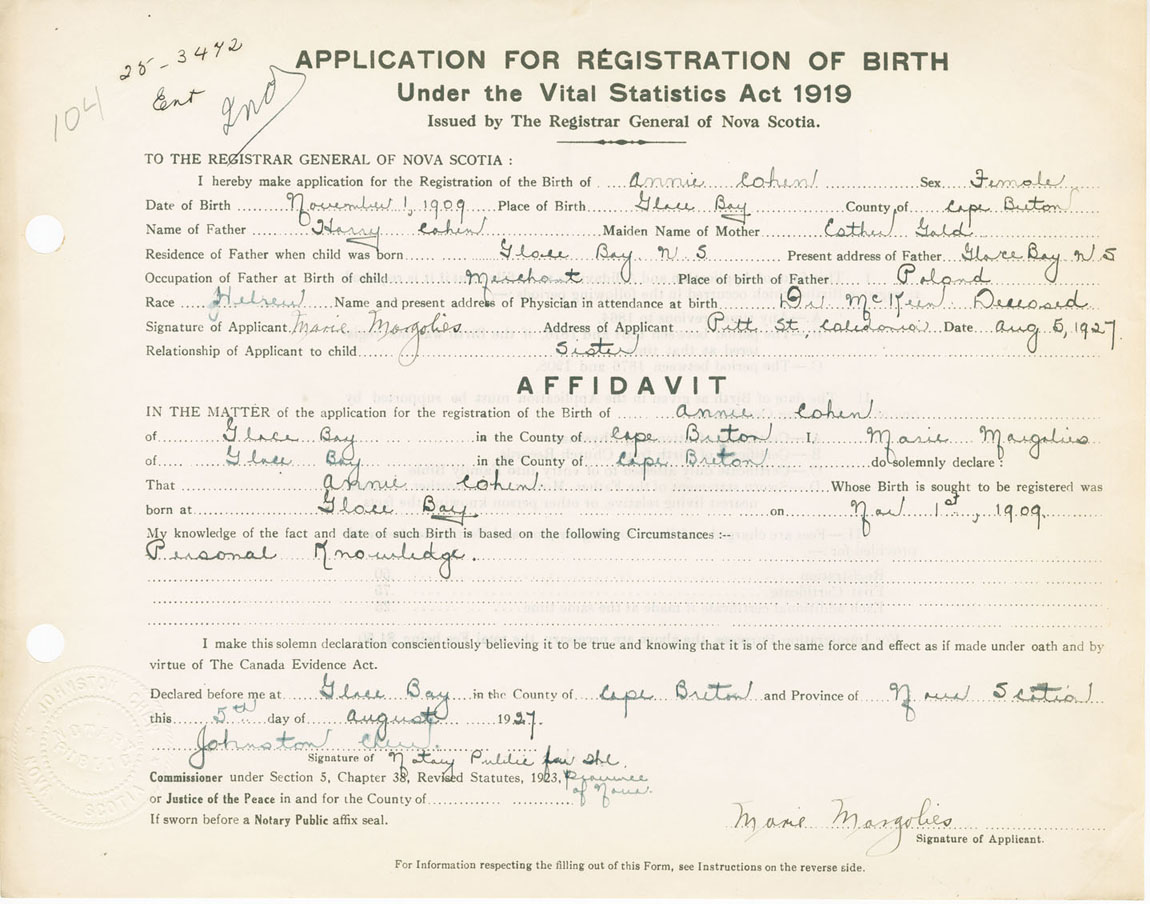 25-3472
104
Ent
APPLICATION FOR REGISTRATION OF BIRTH
Under the Vital Statistics Act 1919
Issued by The Registrar General of Nova Scotia.
TO THE REGISTRAR GENERAL OF NOVA SCOTIA :
I hereby make application for the Registration of the Birth of Annie Cohen Sex Female
Date of Birth November 1, 1909 Place of Birth Glace Bay County of Cape Breton
Name of Father Harry Cohen Maiden Name of Mother Esther Gold
Residence of Father when child was born Glace Bay N S Present address of Father Glace Bay N S
Occupation of Father at Birth of child Merchant Place of birth of Father Poland
Race Hebrew Name and present address of Physician in attendance at birth Dr. McKeen Deceased
Signature of Applicant Marie Margolies Address of Applicant Pitt St, Caledonia Date Aug 5, 1927.
Relationship of Applicant to child Sister
AFFIDAVIT
IN THE MATTER of the application for the registration of the Birth of Annie Cohen
of Glace Bay in the County of Cape Breton I, Marie Margolies
of Glace Bay in the County of Cape Breton do solemnly declare :
That Annie Cohen Whose Birth is sought to be registered was
born at Glace Bay on Nov 1st, 1909
My knowledge of the fact and date of such Birth is based on the following Circumstances :--
Personal Knowledge.
I make this solemn declaration conscientiously believing it to be true and knowing that it is of the same force and effect as if made under oath and by
virtue of The Canada Evidence Act.
Declared before me at Glace Bay in the County of Cape Breton and Province of Nova Scotia
this 5th day of August 1927.
Johnston
Signature of Notary Public for the
Commissioner under Section 5, Chapter 38, Revised Statutes, 1923, Province
of Nova
or Justice of the Peace in and for the County of
If sworn before a Notary Public affix seal.
Marie Margolies
Signature of Applicant.
For Information respecting the filling out of this Form, see Instructions on the reverse side.